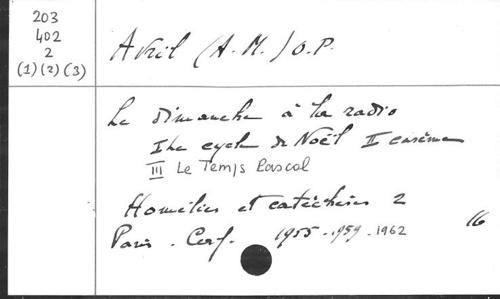 203
402
2
(1)(2)(3)
Avril (A. M.) O.P.
Le dimanche à la radio
I Le cycle de Noël II carême
III Le Temps Pascal
Homélies et catéchèses 2
Paris. Cerf. 1955-1959-1962
16